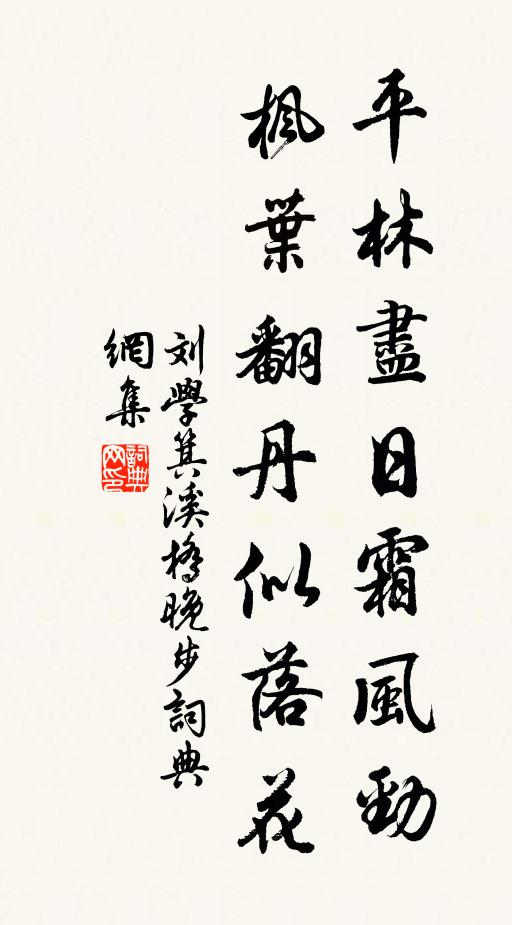 平林盡日霜風勁
枫葉翻丹似落花
刘學箕溪橋晚步詞典
網集
詞典
网印